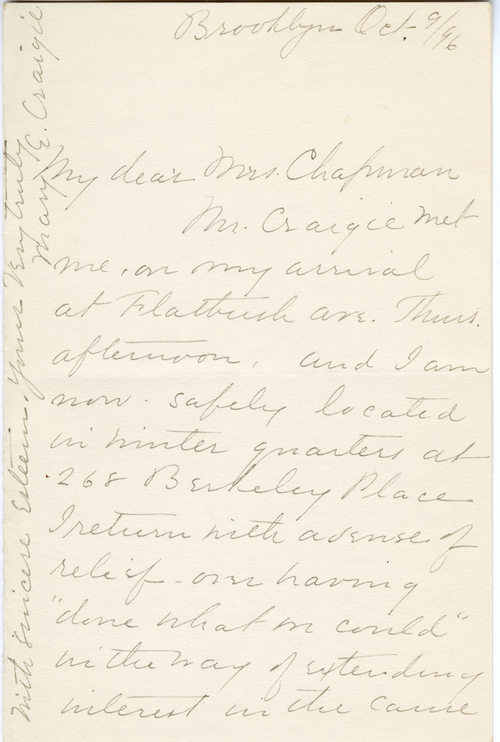 Brooklyn Oct. 9/96
My dear Mrs. Chapman
Mr. Craigie met
me, on my arrival
at Flatbush ave. Thurs.
afternoon, and I am
now safely located
in winter quarters at
268 Berkeley Place
I return with a sense of
relief - over having
"done what we could"
in the way of extending
interest in the cause
With sincere esteem, Yours Very truly
Mary E. Craigie